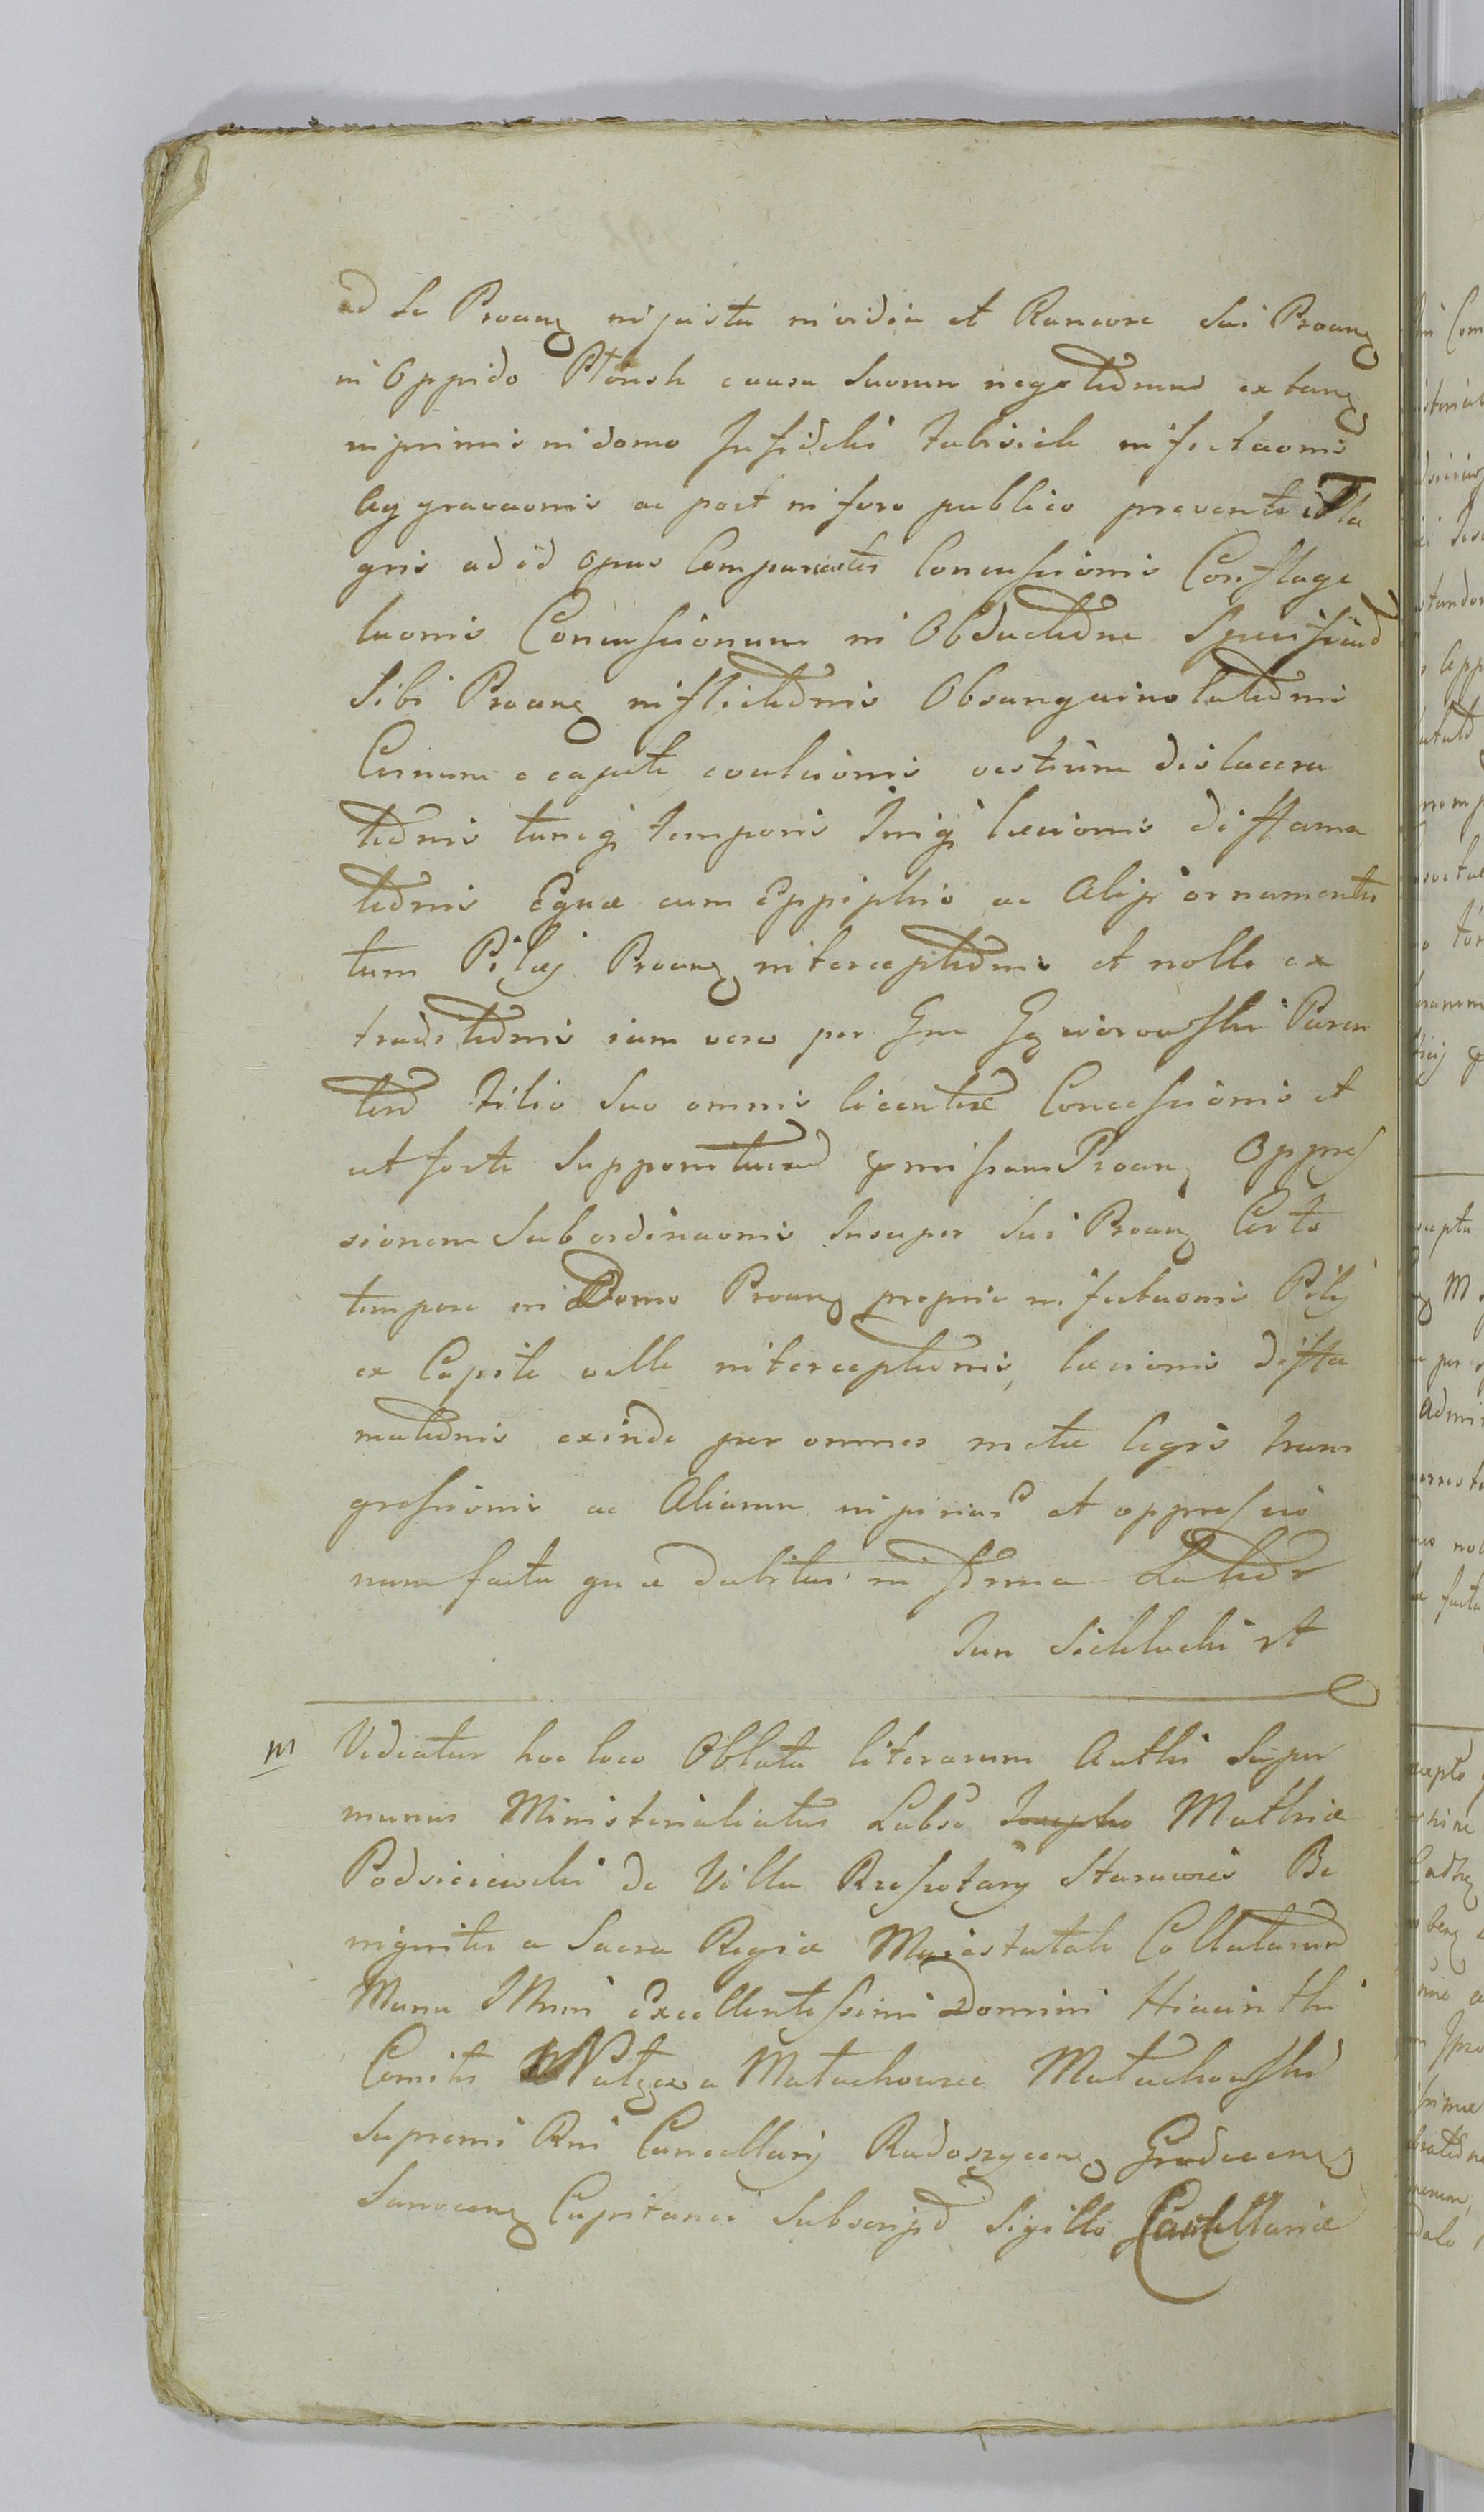 ad se Proveng injusta invidia et Rancore sui Proveng
in Oppido Płońsk causa suorum negotiorum extang
inprimis in domo Infidelis infectaonis
Aggravaonis ac post in foro publico praeventi Fla
gris ad id opus Comparatis Concussionis Conflage
laonis Concussionum in Obductione Specificand
Sibi Proveng inflictionis Obsanguinolationis
Crinum e capite evulsionis vestium dislacera
tionis tunc temporis laesionis diffama
tionis Equae cum Eppiphio ac Alijs ornamentis
tum Pilej Proveng interceptionis et nolle ex
traditionis iam vero per Gm Paren
tem Filio suo omnis licentiae Concessionis et
ut forte Supponitur pmissam Proveng Oppres
sionem Subordinaonis Insuper sui Proveng Certo
tempore in Domo Proveng propria infectaonis Pilej
ex Capite velle interceptionis, laesionis diffa
mationis exinde per omnes metae legis trans
gressionis ac Aliarum injuriar et oppressio
num facta qua dabitur in Termino Latior
Jan Sichlucki
m Videatur hoc loco Oblata literarum Authi Super
munus Ministerialiatus Labso Josepho Mathiae
Podsiciewski de Villa Starawies Be
nignite a Sacra Regia Maiestatate Collatarum
Manu Illmi Excellentissimi Domini Hiacinthi
Comitis Nałęcz a Małachowice Małachowski
Supremi Rni Cancellarij Radoszycen Grodecen
Sanocen Capitanei Subscript Sigillo Cancellariae